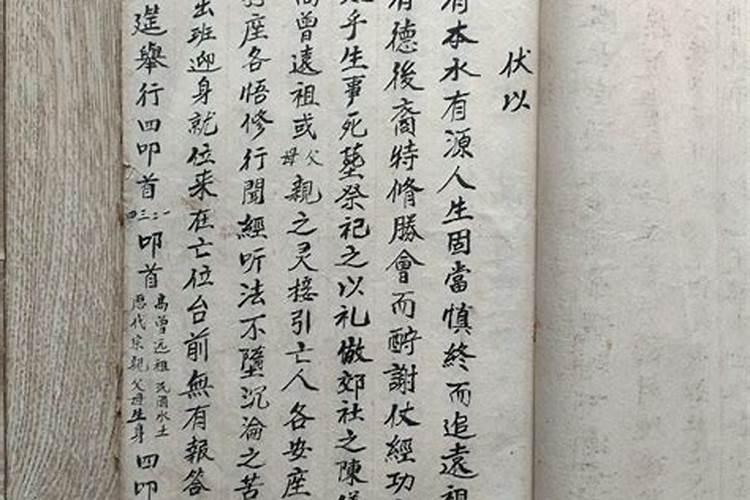 伏以
有本水有源人生固當慎終而追遠祖
有德後裔特脩勝會而酧謝仗經功
乎生事死塟祭祀之以礼倣郊社之陳
高曾遠祖或父母親之灵接引亡人各安座
座各悟修行聞經听法不墮沉淪之苦
出班迎身就位来在亡位台前無有報答
筵舉行四叩首一二三四叩首高曾远祖 水土 历代宗親父母生身四叩